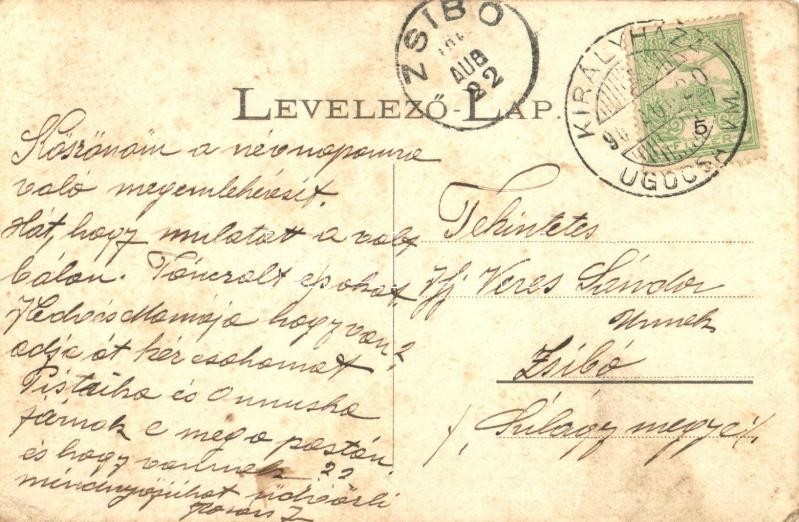 ZSIBO
AUG
22
KIRÁLYHÁZA
UGOCSA VM.
LEVELEZŐ-LAP.
Köszönöm a névnapomra
való megemlékezését.
Hát, hogy mulatot a
bálon. Tánczolt e sokat,
Hedvi és Mamája hogy van?
adja át kézcsókomat
Pistáéka és Onnuska
járnak e még a postán,
és hogy vannak??
mindnyájukat üdvözli
Tekintetes
Ifj. Veres Sándor
Urnak
Zsibó
(Szilágy megye).